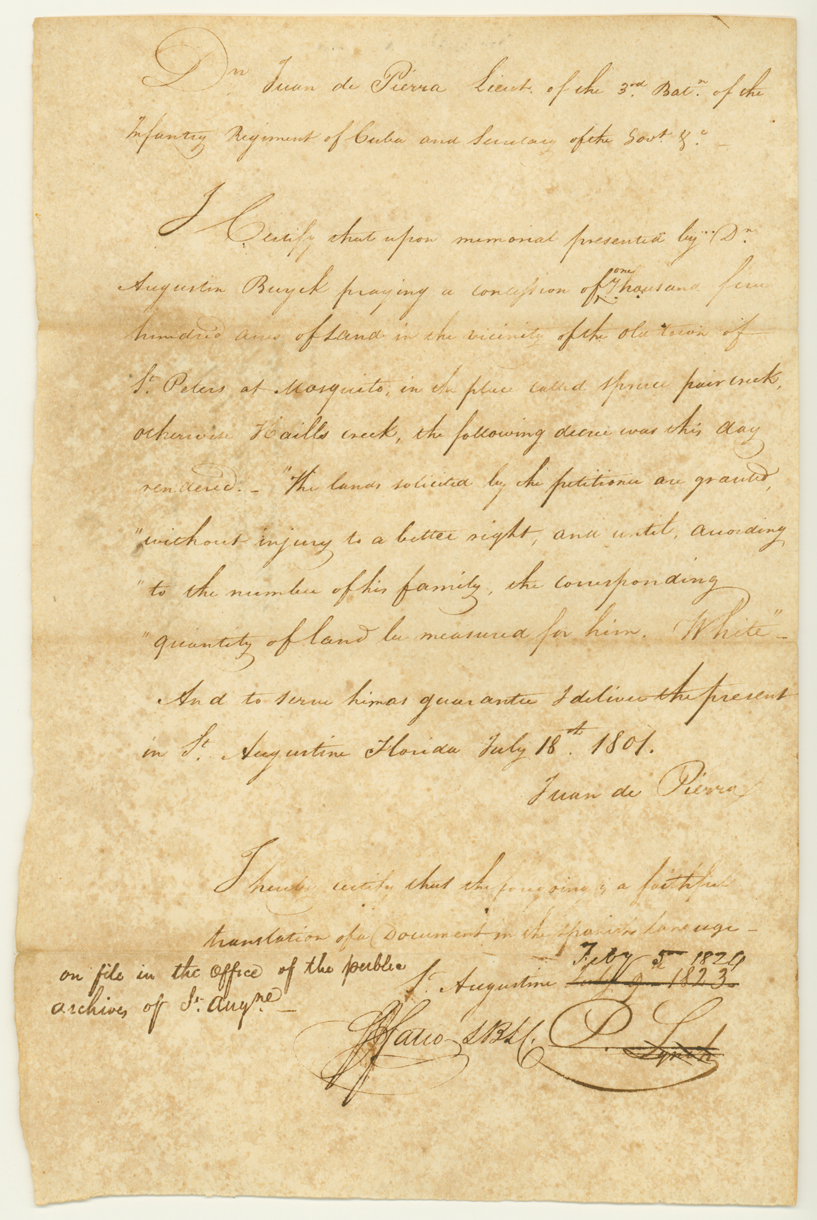 Dn Juan de Pierra Lieut. of the 3rd Batn. of the
Infantry Regiment of Cuba and Secretary of the Govt. &c. —
I Certify that upon memorial presented by Dn.
Augustin Buyck praying a concession of one Thousand five
hundred acres of Land in the vicinity of the old Town of
St. Peters at Mosquito, in the place called Spruce pair creek,
otherwise Haills creek, the following decree was this day
rendered. — "The lands solicited by the petitioner are granted,
"without injury to a better right, and until, according
"to the number of his family, the corresponding
"quantity of land be measured for him. White" —
And to serve him as guarantee I deliver the present
in St. Augustine Florida July 18th. 1801.
Juan de Pierra
I hereby certify that the foregoing is a faithful
translation of a Document in the Spanish Language —
on file in the office of the public
archives of St. Augne. —
Feby 5th 1824
St. Augustine 9th 1823.
P. Lynch